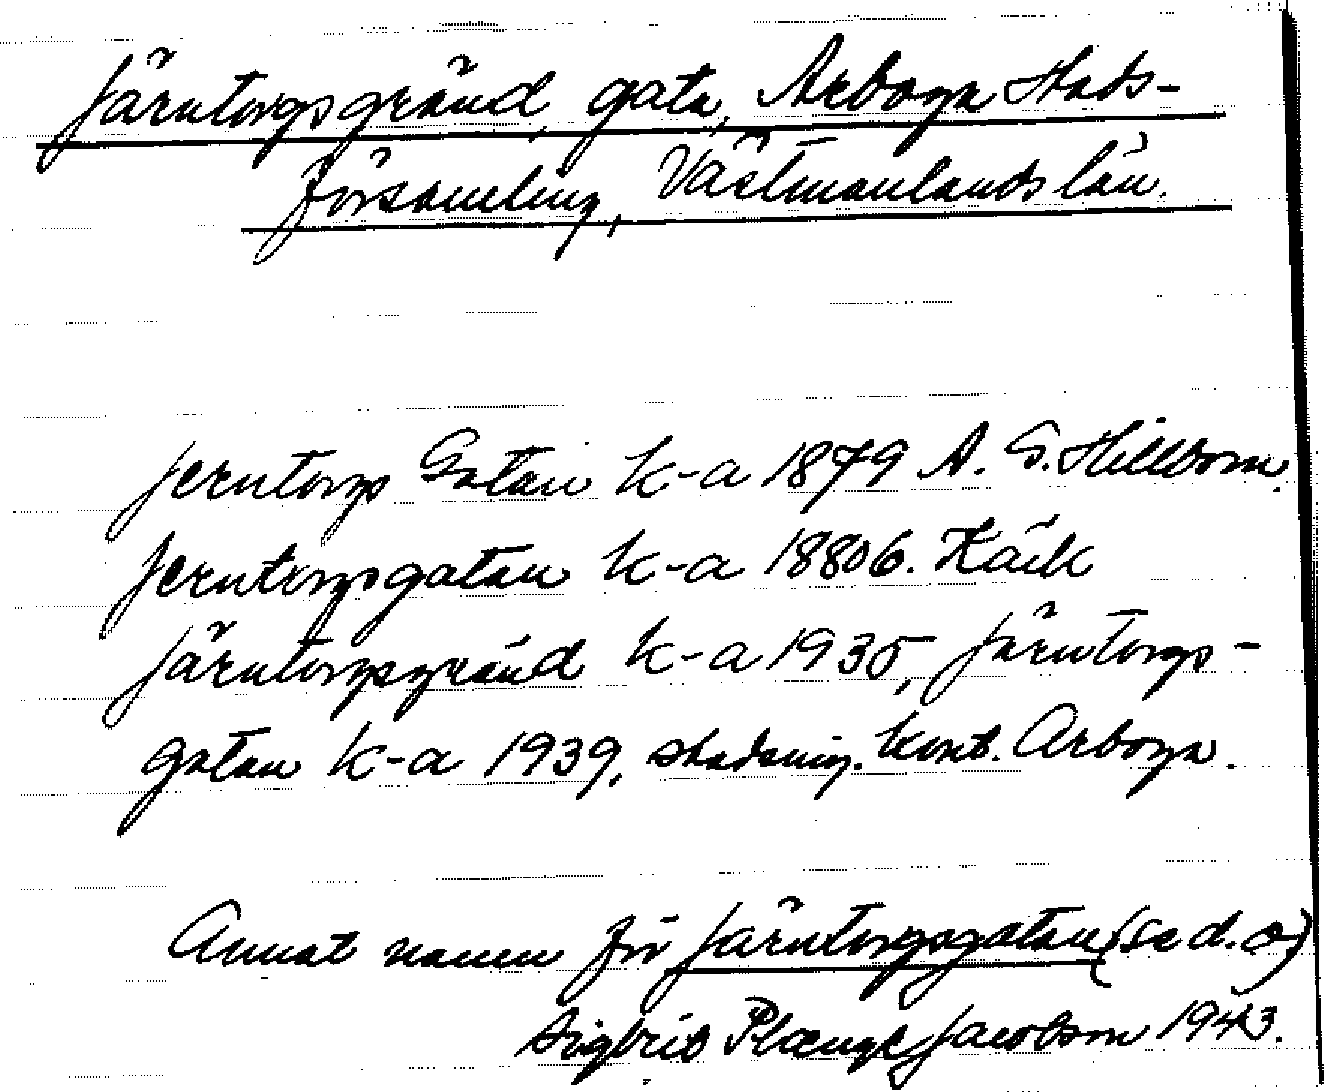 Järntorgsgränd, gata, Arboga stads-
församling, Västmanlands län.
Jerntorgs Gatan k-a 1879 A. G. Hillbom.
Jerntorgsgatan k-a 1880 G. Käck
Järntorgsgränd k-a 1935, Järntorgs-
gatan k-a 1939, stadsing. kont. Arboga.
Annat namn för Järntorgsgatan (se d. o)
Sigbrit Plænge Jacobson 1943.